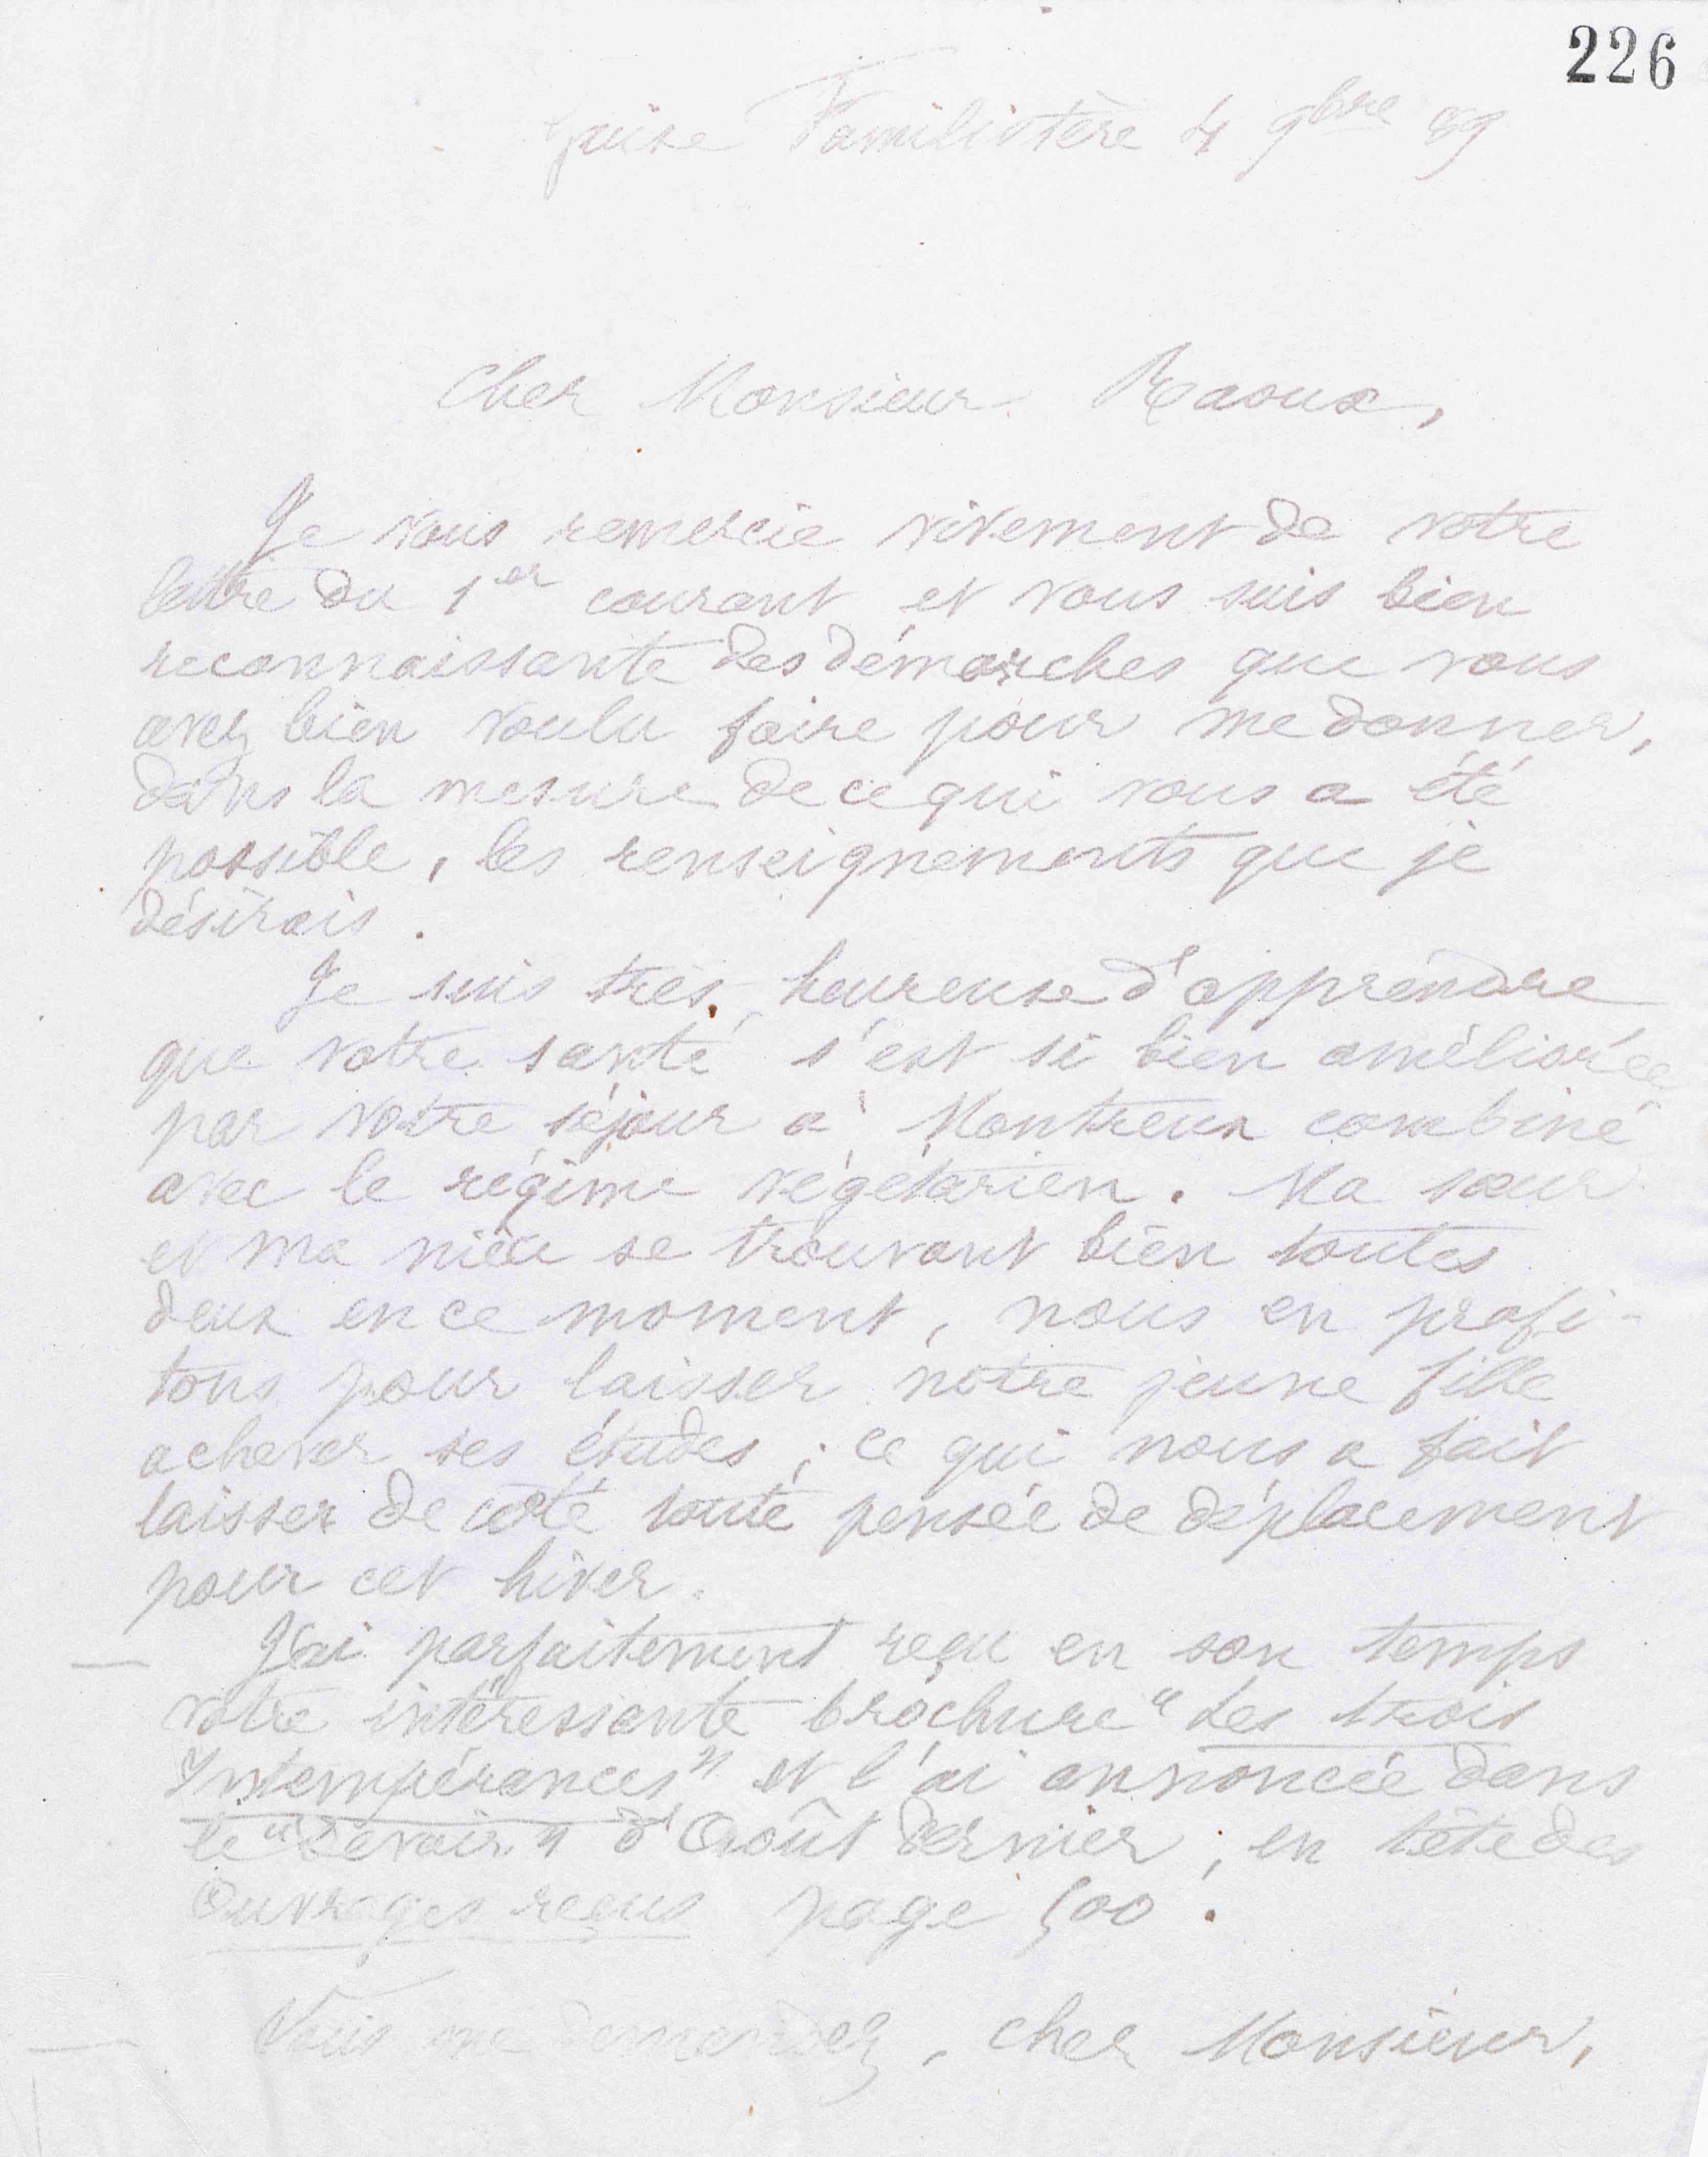 226
Guise Familistère 4 9bre 89
Cher Monsieur Raoux,
Je vous remercie vivement de votre
lettre du 1er courant et vous suis bien
reconnaissante des démarches que vous
avez bien voulu faire pour me donner,
dans la mesure de ce qui vous a été
possible, les renseignements que je
désirais.
Je suis très heureuse d'apprendre
que votre santé s'est si bien améliorée
par votre séjour à Montreux combiné
avec le régime végétarien. Ma sœur
et ma nièce se trouvant bien toutes
deux en ce moment, nous en profi-
tons pour laisser notre jeune fille
achever ses études ; ce qui nous a fait
laisser de côté toute pensée de déplacement
pour cet hiver.
J'ai parfaitement reçu en son temps
votre intéressante brochure "Les trois
Intempérances" et l'ai annoncée dans
le "Devoir" d'Août dernier, en tête des
Ouvrages reçus page 500.
Vous me demandez, cher Monsieur,